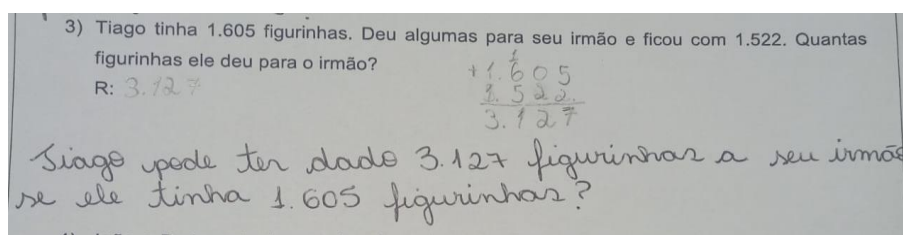 3) Tiago tinha 1.605 figurinhas. Deu algumas para seu irmão e ficou com 1.522. Quantas
figurinhas ele deu para o irmão?
R: 3.127
1
+1.605
1.522
3.127
Tiago pode ter dado 3.127 figurinhas a seu irmão
se ele tinha 1.605 figurinhas?